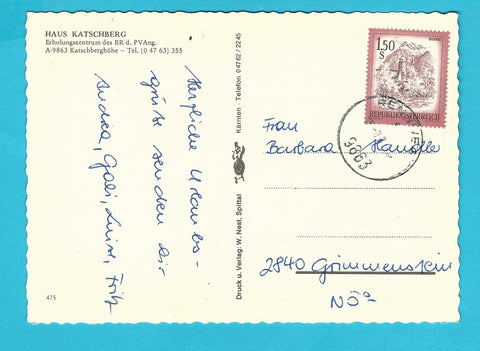 HAUS KATSCHBERG
Erholungszentrum des BR d. PVAng.
A-9863 Katschberghöhe – Tel. (0 47 63) 355
Herzliche Urlaubs-
grüße senden Dir
Andrea, Gabi, Luise, Fritz
475
Druck u. Verlag: W. Nest, Spittal
Kärnten Telefon 04762 / 2245
1.50
S
REPUBLIK ÖSTERREICH
9863
Frau
Barbara
2840 Grimmenstein
NÖ.